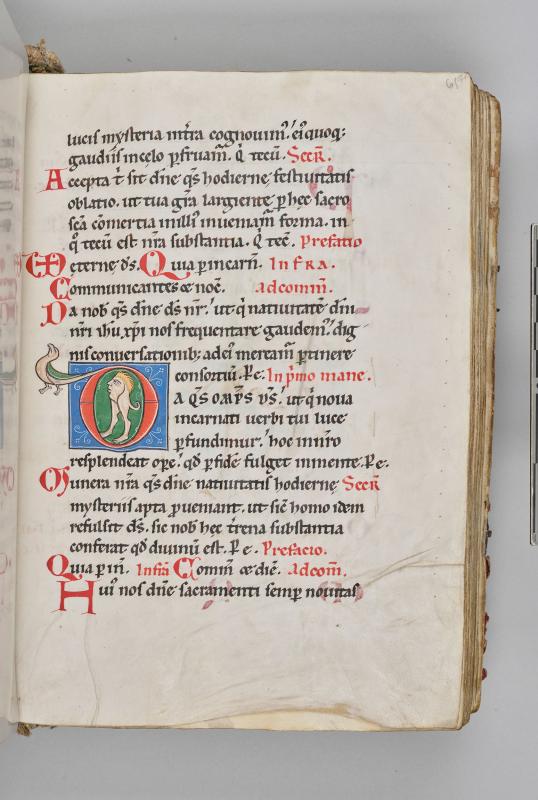 lucis mysteria intra cognouim᷒. ei᷒quoq;
gaudiis incelo ꝑfruam̄. Q̇ tecū. Secr̄.
Accepta t̄ sit dn̄e q̄s hodiernę festiuitatis
oblatio. ut tua gr̄a largiente ꝑ hęc sacro
sc̄a cōmertia in illi᷒ inueniam̄ forma. in
q̇ tecū est nr̄a substantia. Q̇ tec̄. Prefatio
VD eternę d̄s. Quia ꝑ incarn̄. Infra.
Communicantes & noc̄. Adcom̄.
Da nob̄ q̄s dn̄e d̄s nr̄. ut q̇ natiuitatē dn̄i
nr̄i ih̄u xp̄i nos frequentare gaudem᷒. dig
nis conuersationib; ad ei᷒ meream̄ ꝑtinere
consortiū. Ꝑ e. In ṗmo mane.
DA Q̄S OMP̄S D̄S. ut q̇ noua
incarnati uerbi tui luce
ꝑfundimur. hoc in nr̄o
resplendeat oꝑe. qd̄ ꝑ fidē fulget in mente. Ꝑ e.
Munera nr̄a q̄s dn̄e natiuitatis hodiernę Secr̄
mysteriis apta ꝓueniant. ut sic̄ homo idem
refulsit d̄s. sic nob̄ hęc t̄rena substantia
conferat qd̄ diuinū est. Ꝑ e. Prefacio.
Quia ꝑ in̄. Infrā Com̄m & diē. Adcom̄.
Hui᷒ nos dn̄e sacramenti semꝑ nouitas